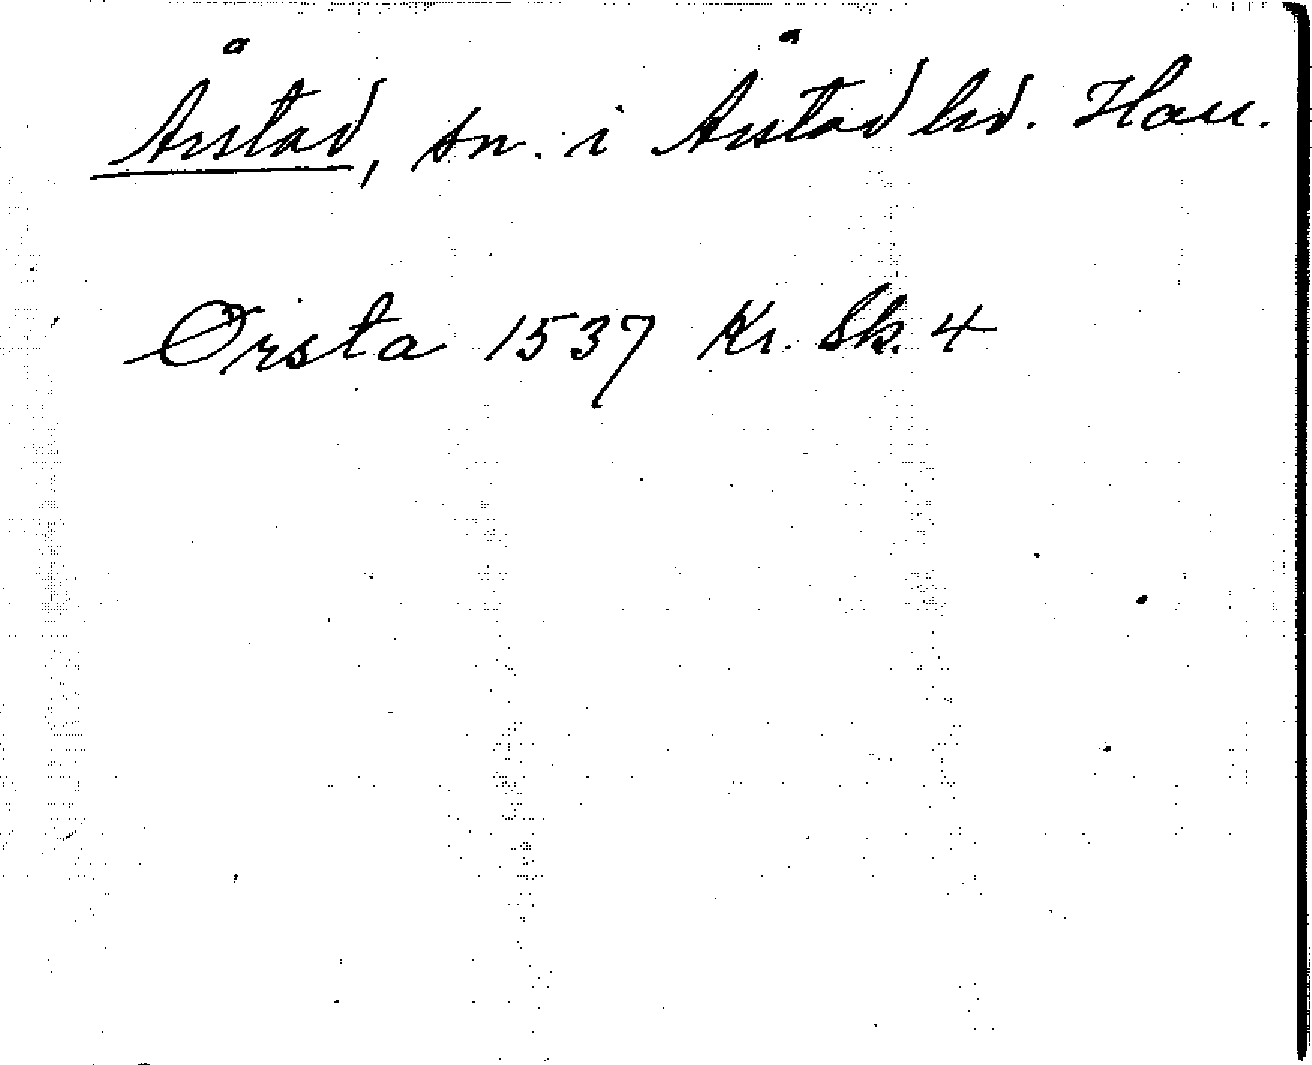 Årstad, sn. i Årstad hd. Hall.
Ørsta 1537 Kr. Sk. 4